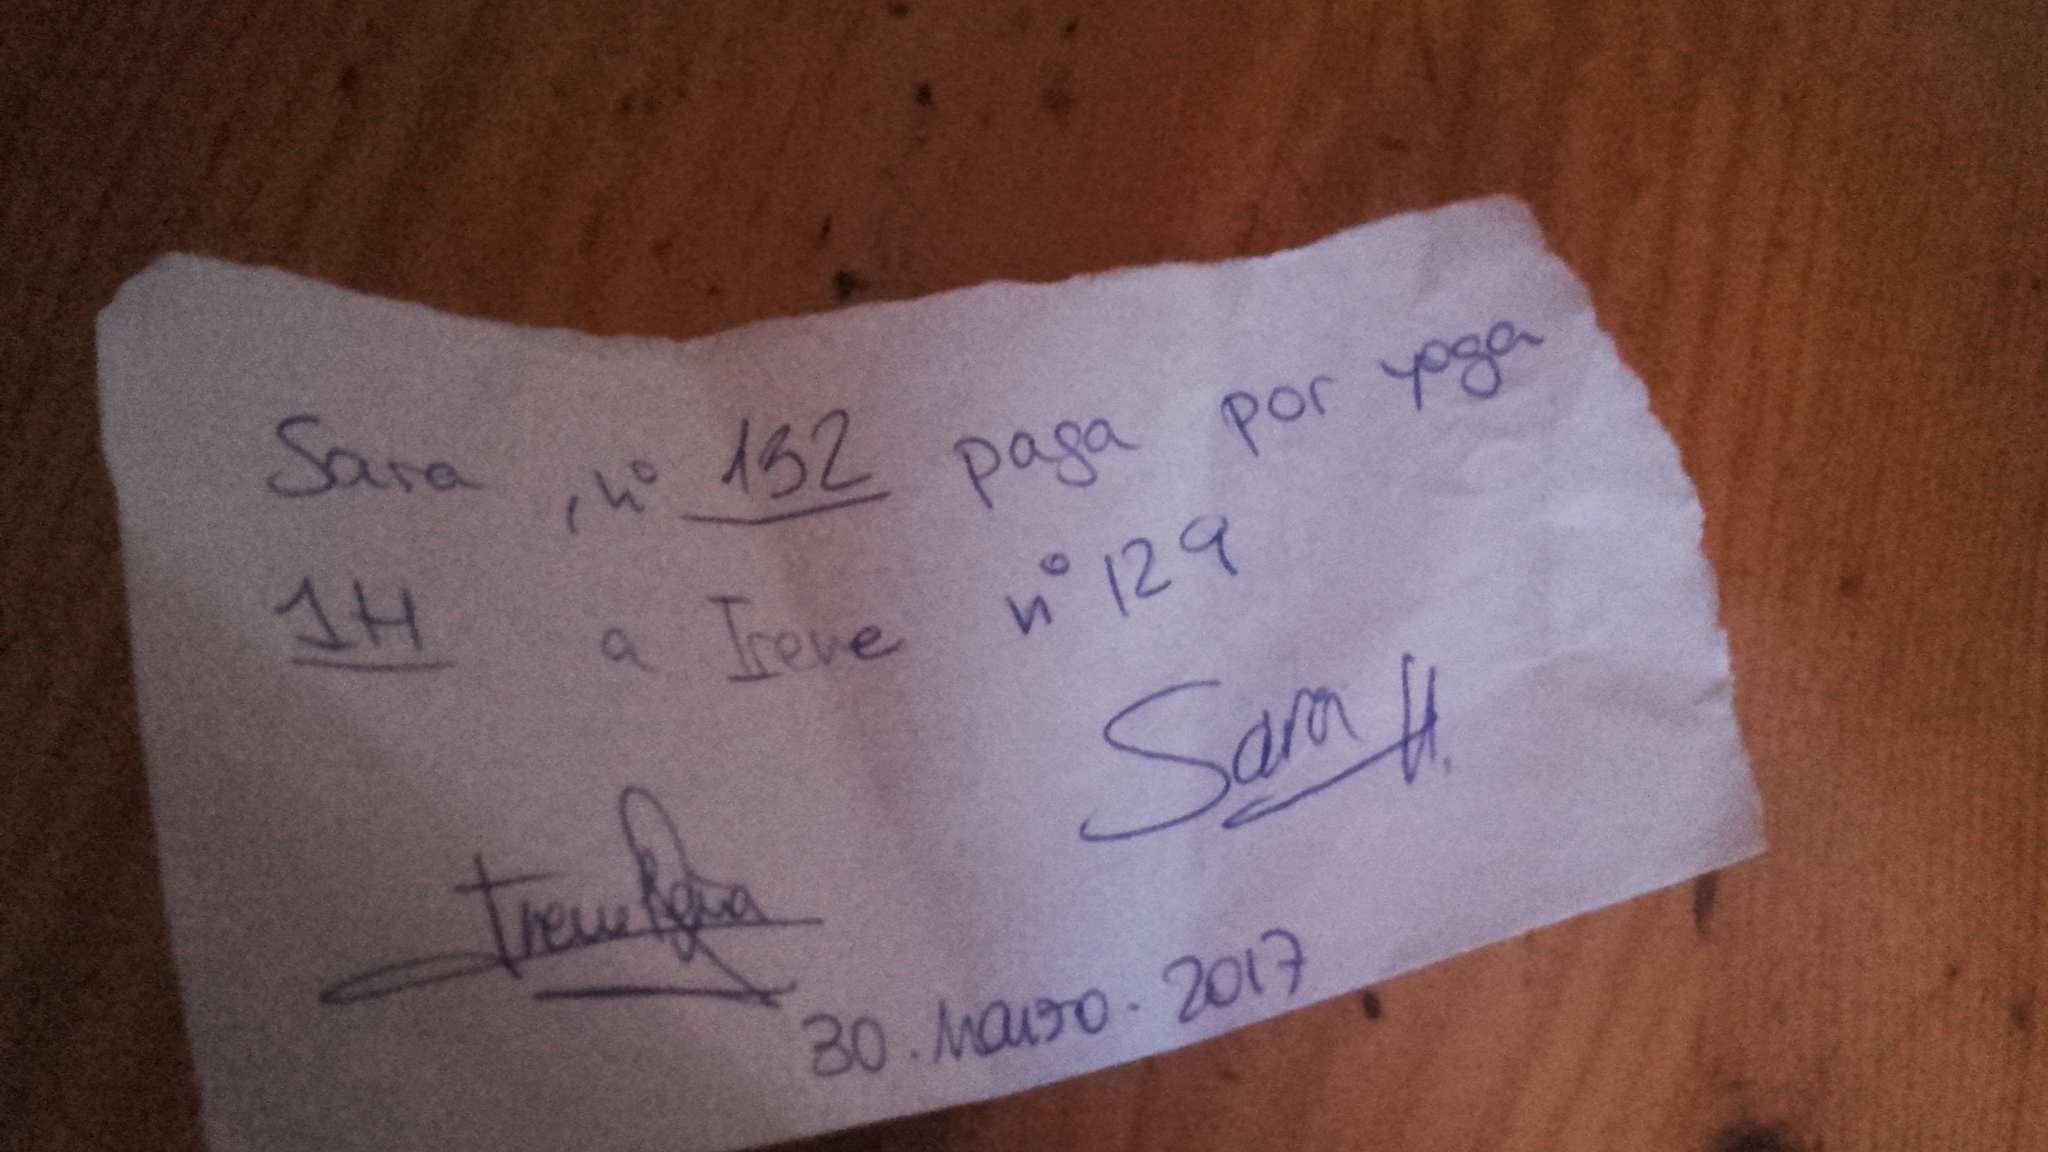 Sara, nº 132 paga por yoga
1H a Irene nº 129
Sara H.
Irene
30. Marzo. 2017